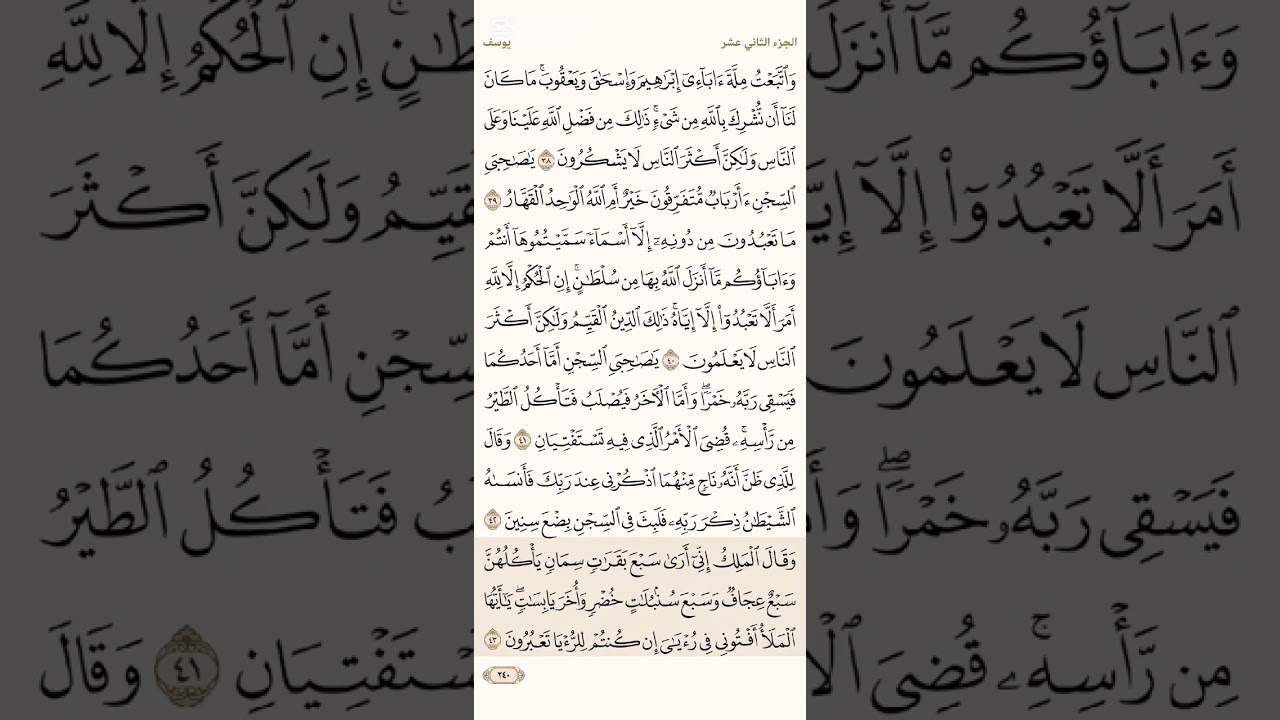 الجزء الثاني عشر
يوسف
وَٱتَّبَعْتُ مِلَّةَ ءَابَآءِىٓ إِبْرَٰهِيمَ وَإِسْحَٰقَ وَيَعْقُوبَ ۚ مَا كَانَ
لَنَآ أَن نُّشْرِكَ بِٱللَّهِ مِن شَىْءٍ ۚ ذَٰلِكَ مِن فَضْلِ ٱللَّهِ عَلَيْنَا وَعَلَى
ٱلنَّاسِ وَلَٰكِنَّ أَكْثَرَ ٱلنَّاسِ لَا يَشْكُرُونَ ٣٨ يَٰصَٰحِبَىِ
ٱلسِّجْنِ ءَأَرْبَابٌ مُّتَفَرِّقُونَ خَيْرٌ أَمِ ٱللَّهُ ٱلْوَٰحِدُ ٱلْقَهَّارُ ٣٩
مَا تَعْبُدُونَ مِن دُونِهِۦٓ إِلَّآ أَسْمَآءً سَمَّيْتُمُوهَآ أَنتُمْ
وَءَابَآؤُكُم مَّآ أَنزَلَ ٱللَّهُ بِهَا مِن سُلْطَٰنٍ ۚ إِنِ ٱلْحُكْمُ إِلَّا لِلَّهِ
أَمَرَ أَلَّا تَعْبُدُوٓا۟ إِلَّآ إِيَّاهُ ۚ ذَٰلِكَ ٱلدِّينُ ٱلْقَيِّمُ وَلَٰكِنَّ أَكْثَرَ
ٱلنَّاسِ لَا يَعْلَمُونَ ٤٠ يَٰصَٰحِبَىِ ٱلسِّجْنِ أَمَّآ أَحَدُكُمَا
فَيَسْقِى رَبَّهُۥ خَمْرًا ۖ وَأَمَّا ٱلْـَٔاخَرُ فَيُصْلَبُ فَتَأْكُلُ ٱلطَّيْرُ
مِن رَّأْسِهِۦ ۚ قُضِىَ ٱلْأَمْرُ ٱلَّذِى فِيهِ تَسْتَفْتِيَانِ ٤١ وَقَالَ
لِلَّذِى ظَنَّ أَنَّهُۥ نَاجٍ مِّنْهُمَا ٱذْكُرْنِى عِندَ رَبِّكَ فَأَنسَىٰهُ
ٱلشَّيْطَٰنُ ذِكْرَ رَبِّهِۦ فَلَبِثَ فِى ٱلسِّجْنِ بِضْعَ سِنِينَ ٤٢
وَقَالَ ٱلْمَلِكُ إِنِّىٓ أَرَىٰ سَبْعَ بَقَرَٰتٍ سِمَانٍ يَأْكُلُهُنَّ
سَبْعٌ عِجَافٌ وَسَبْعَ سُنۢبُلَٰتٍ خُضْرٍ وَأُخَرَ يَابِسَٰتٍ ۖ يَٰٓأَيُّهَا
ٱلْمَلَأُ أَفْتُونِى فِى رُءْيَٰىَ إِن كُنتُمْ لِلرُّءْيَا تَعْبُرُونَ ٤٣
٢٤٠